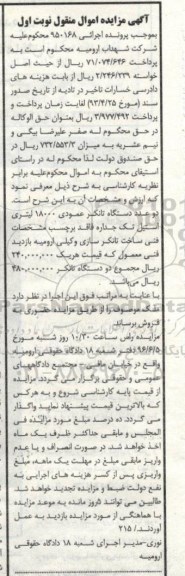 آگهی مزایده اموال منقول نوبت اول
بموجب پرونده اجرائی ۹۵۰۱۶۸ محکوم‌علیه
شرکت شهداب ارومیه محکوم است به
پرداخت ۷۱/۰۷۴/۶۴۶ ریال از حیث اصل
خواسته ۲/۲۴۶/۲۳۹ ریال از بابت هزینه های
دادرسی خسارات تاخیر در تادیه از تاریخ صدور
سند (مورخ ۹۳/۴/۲۵) لغایت زمان پرداخت و
پرداخت ۳/۹۷۷/۴۹۲ ریال بعنوان حق الوکاله
در حق محکوم له صفر علیرضا بیگی و
نیم عشریه به میزان ۷۳۲/۵۵۳/۳ ریال در
حق صندوق دولت لذا محکوم له در راستای
استیفای محکوم به اموال محکوم‌علیه برابر
نظریه کارشناسی به شرح ذیل معرفی نمود
که ارزش و مشخصات آن به این شرح است.
دو عدد دستگاه تانکر عمودی ۱۸۰۰۰ لیتری
استیل تک جداره فاقد برچسب مشخصات
فنی ساخت تانکر سازی وکیلی ارومیه بازدید
فنی معمول که قیمت هریک ۲۴۰٬۰۰۰٬۰۰۰
ریال مجموع دو دستگاه تانکر ۴۸۰٬۰۰۰٬۰۰۰
ریال می‌باشد.
با عنایت به مراتب فوق این اجرا در نظر دارد
تانک موصوف را از طریق مزایده حضوری به
فروش برساند.
مزایده راس ساعت ۱۰/۳۰ روز شنبه مورخ
۹۶/۶/۵ دفتر شعبه ۱۸ دادگاه حقوقی ارومیه
واقع در خیابان مافی - مجتمع دادگاههای
عمومی و حقوقی برگزار می‌گردد. مزایده
از قیمت پایه کارشناسی شروع و به هرکس
که بالاترین قیمت پیشنهاد نماید واگذار
می گردد. ده درصد مبلغ مورد مزایده فی
المجلس و مابقی حداکثر ظرف یک ماه
اخذ خواهد شد در صورت انصراف و یا عدم
واریز مابقی مبلغ در مهلت یک ماهه، مبلغ
واریزی پس از کسر هزینه های اجرایی به
نفع دولت ضبط و مزایده تجدید خواهد شد
طالبین می توانند ۵روز مانده به موعد مزایده
با هماهنگی از مورد مزایده بازدید به عمل
آورند./ ۲۱۵
نوری-مدیر اجرای شعبه ۱۸ دادگاه حقوقی
ارومیه